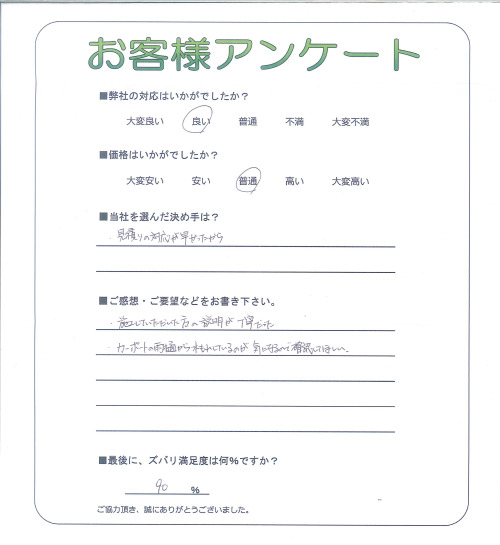 お客様アンケート
■弊社の対応はいかがでしたか？
大変良い 良い 普通 不満 大変不満
■価格はいかがでしたか？
大変安い 安い 普通 高い 大変高い
■当社を選んだ決め手は？
・見積りの対応が早かったから
■ご感想・ご要望などをお書き下さい。
・施工していただいた方の説明が丁寧だった
・カーポートの雨樋から水もれしているのが気になるので確認してほしい。
■最後に、ズバリ満足度は何％ですか？
90 ％
ご協力頂き、誠にありがとうございました。